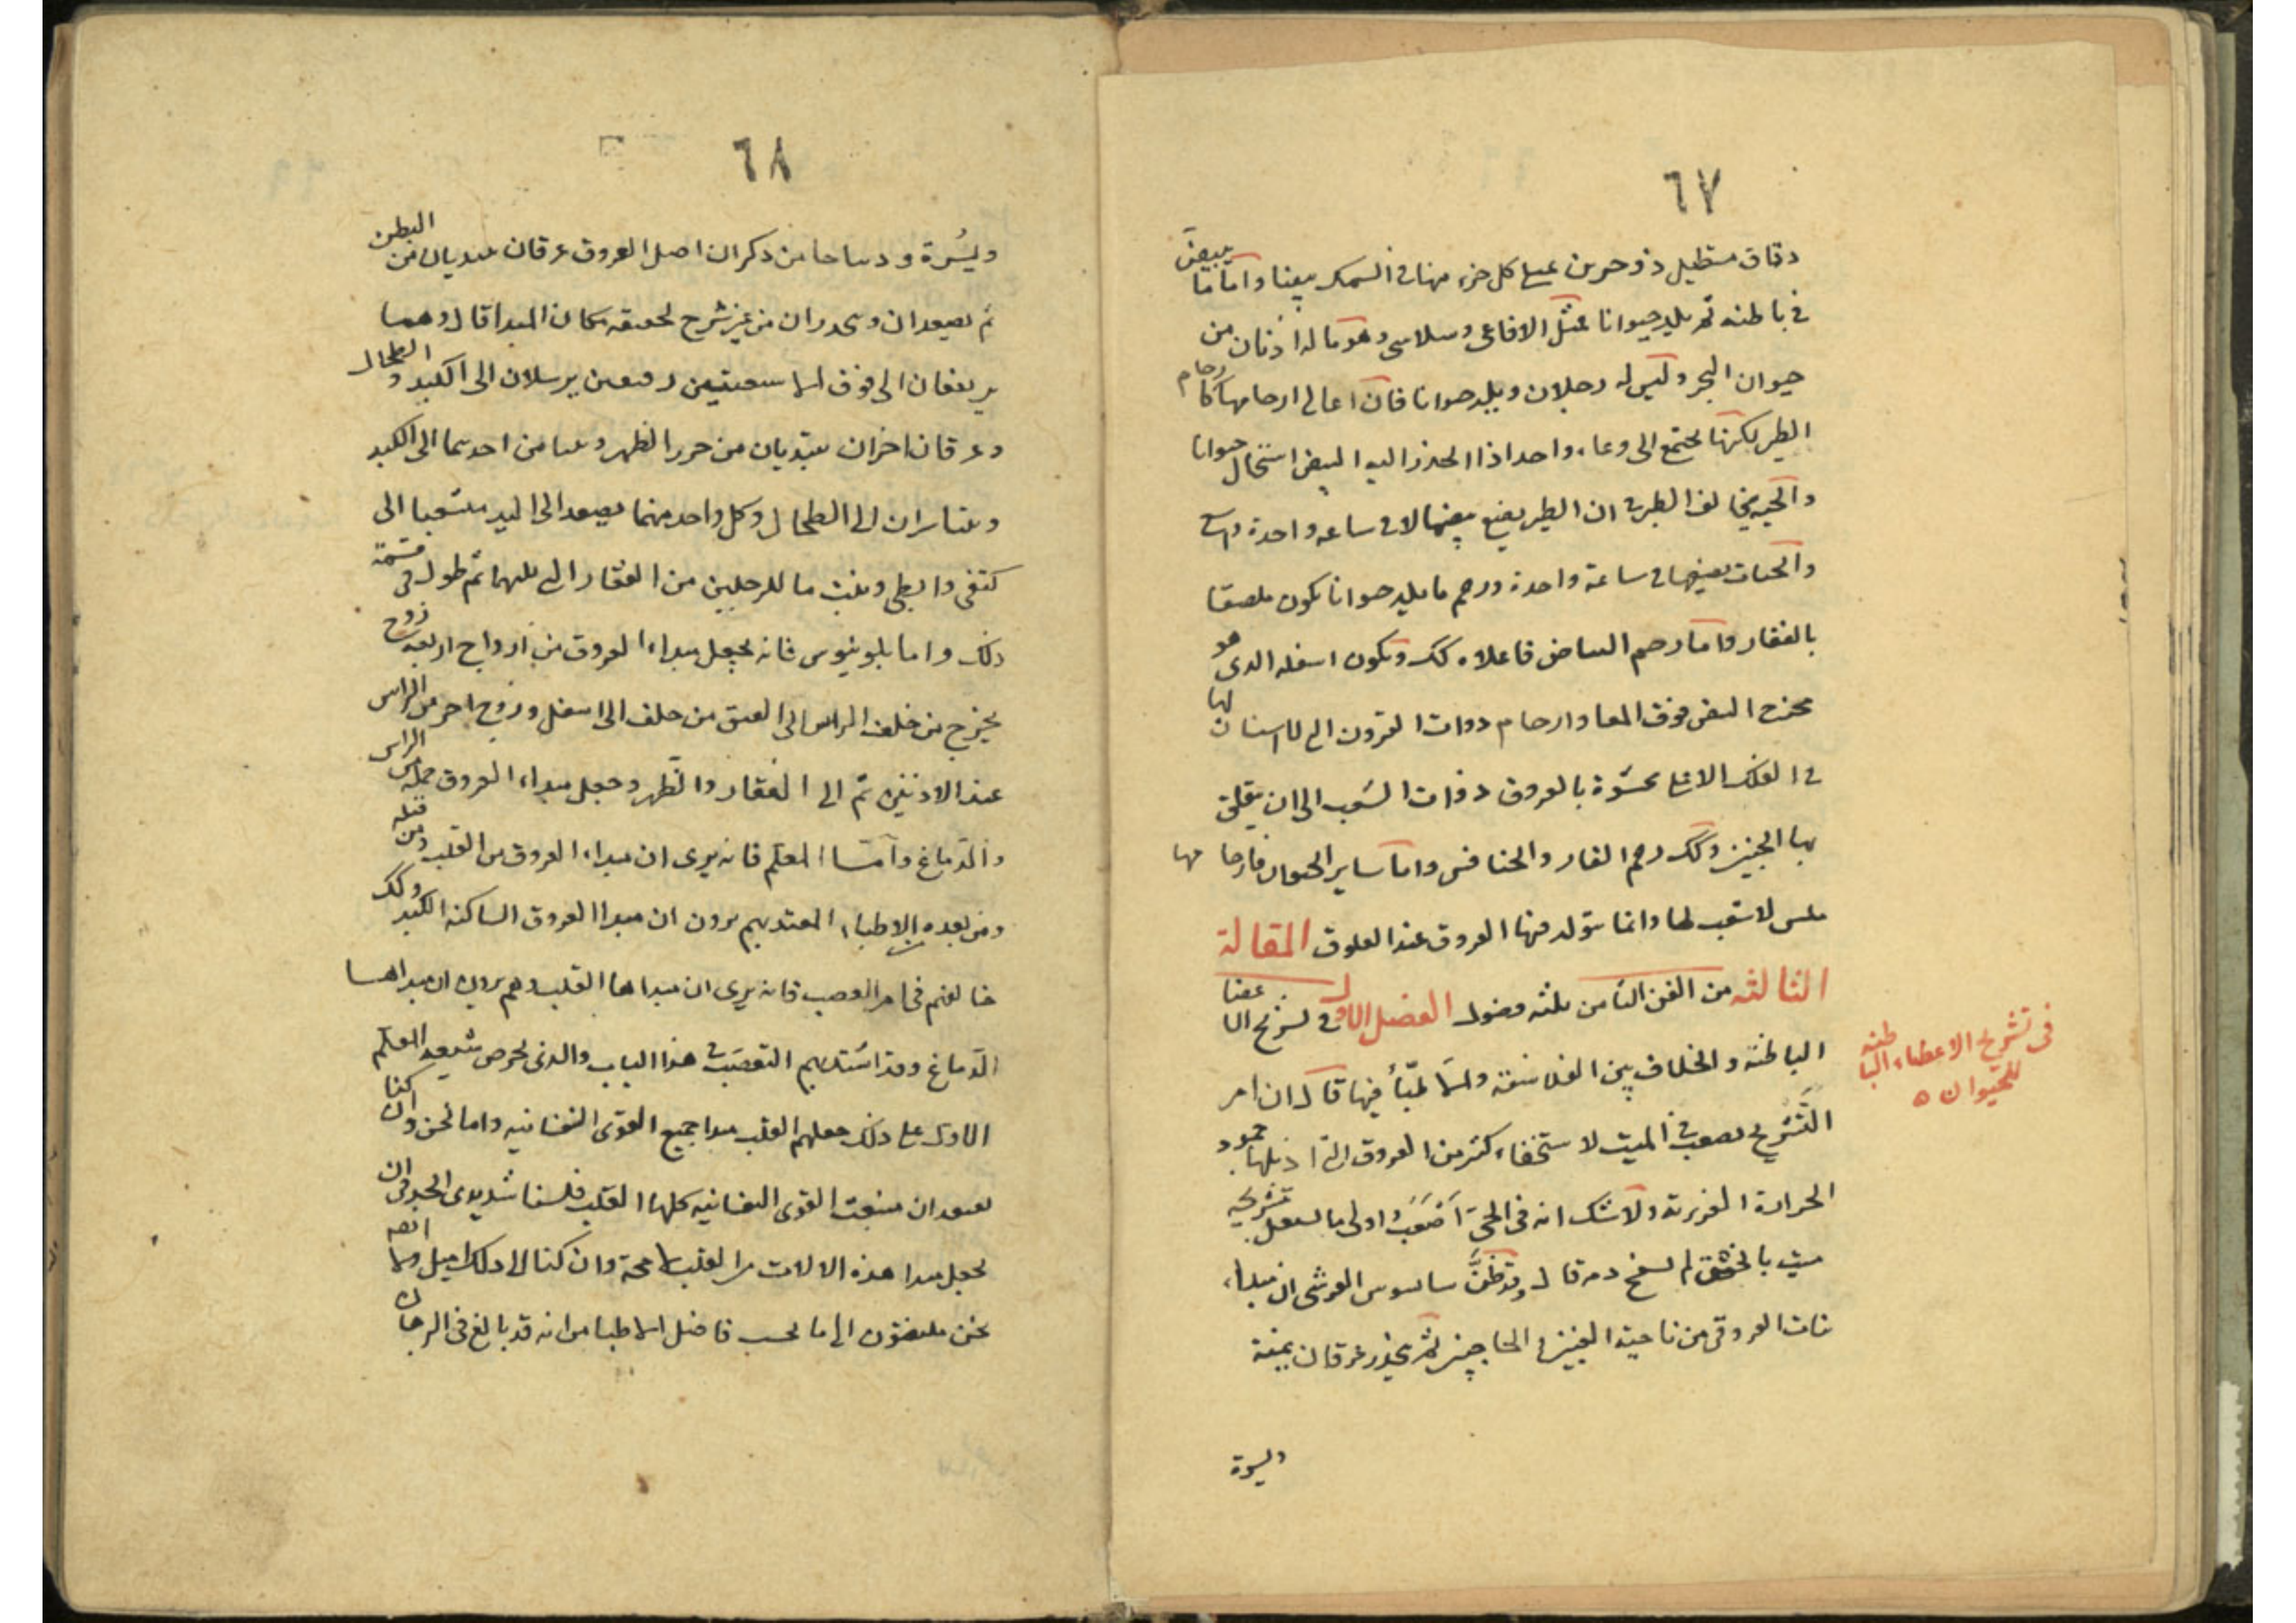 ٦٧
دقاق مستطيل ذو حرين على كل جزء منها في السمك بيضا واما ما يبيض
في باطنه ثم يلد حيوانا مثل الافاعي وسلاسى وهو ما له اذنان من
حيوان البحر وليس له رجلان ويلد حيوانا فان اعالي ارحامها كارحام
الطير لكنها تجتمع الى وعاء واحد اذا انحدر اليه البيض استحال حيوانا
والحية تخالف الطير في ان الطير يضع بيضها لا في ساعة واحدة
والحيات يضعنها في ساعة واحدة ورحم ما يلد حيوانا يكون ملصقا
بالفقار واما رحم البياض فاعلاه كك ويكون اسفله الذى هو
مخرج البيض فوق المعا وارحام ذوات القرون التي لها لا اسنان
في الفك الاعلى محشوة بالعروق ذوات الشعب الى ان يتعلق
بها الجنين وكك رحم الفار والخنافس واما ساير الحيوان فارحامها
ملس لا شعب لها وانما يتولد فيها العروق عند العلوق المقالة
الثالثه من الفن الثامن ثلثه فصول الفصل الاول في تشريح الاعضا
الباطنة والخلاف بين الفلاسفة والاطبأ فيها قال ان امر
التشريح يصعب في الميت لاستخفاء كثير من العروق التي اذبلها جمود
الحرارة الغريزية ولا شك انه في الحي اصعب واولى ما يفعل تشريحه
ميت بالخنق لم يسفح دمه قال وقد ظن ساسوس القبرشى ان مبداء
نبات العروق من ناحية العينين والحاجبين ثم ينحدر عرقان يمنة
ويسرة
في تشريح الاعضاء الباطنه
للحيوان
٦٨
ويسرة ود ساحا من ذكر ان اصل العروق عرقان يبتديان من البطن
ثم يصعدان وينحدران من غير شرح لحقيقه مكان المبدا قال وهما
يرتفعان الى فوق الا شعبتين دقيقتين يرسلان الى الكبد والطحال
وعرقان اخران يبتديان من خرز الظهر وياتيا من احدهما الى الكبد
ويتياسران الى الطحال وكل واحد منهما يصعد الى اليد متشعبا الى
كتفى وابطى وينبث ما للرجلين من الفقار التي تليهما ثم طول في قسمة
ذلك واما بلوبنيوس فانه يجعل مبداء العروق من ازواج اربعه زوج
يخرج من خلف الراس الى العنق من خلف الى اسفل وزوج اخر من الراس
عند الاذنين ثم الى الفقار والظهر وجعل مبداء العروق جملة من الراس
والدماغ واما المعلم فانه يرى ان مبداء العروق من القلب ومن قبله
ومن بعده الاطباء المعتد بهم يرون ان مبدا العروق الساكنه الكبد وكك
خالفهم في امر العصب فانه يرى ان مبداها القلب وهم يرون ان مبداها
الدماغ وقد اشتد بهم التعصب في هذا الباب والذي يحرص شيعه المعلم
الاول على ذلك جعلهم القلب مبدا جميع القوى النفسانيه واما نحن وان كنا
نعتقد ان منبعث القوى النفسانيه كلها القلب فلسنا شديدى الجد في ان
يجعل مبدا هذه الالات من القلب لا محة وان كنا الى ذلك اميل ولسنا
نحن ملتفتون الى ما يحسب فاضل الاطبا من انه قد بالغ في البرهان